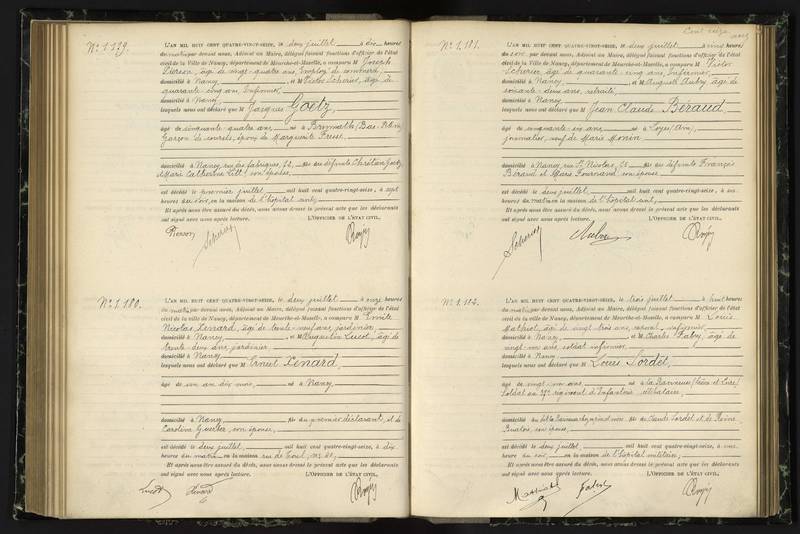 N° 1.179.
L'AN MIL HUIT CENT QUATRE-VINGT-SEIZE, le deux juillet à dix heures
du matin par devant nous, Adjoint au Maire, délégué faisant fonctions d'officier de l'état
civil de la Ville de Nancy, département de Meurthe-et-Moselle, a comparu M Joseph
Pierson, âgé de vingt-quatre ans, Employé de commerce,
domicilié à Nancy et M Victor Scherier, âgé de
quarante cinq ans, Infirmier,
domicilié à Nancy
lesquels nous ont déclaré que M Jacques Goetz,
âgé de cinquante quatre ans né à Brumath (Bas-Rhin)
Garçon de courses, époux de Marguerite
domicilié à Nancy, rue des fabriques, 72, fils des défunts Chrétien Goetz
et Marie Catherine son épouse,
est décédé le premier juillet mil huit cent quatre-vingt-seize, à sept
heures du soir, en la maison de l'hôpital civil,
Et après nous être assuré du décès, nous avons dressé le présent acte que les déclarants
ont signé avec nous après lecture. L'OFFICIER DE L'ÉTAT CIVIL,
Pierson Scherier
N° 1.180.
L'AN MIL HUIT CENT QUATRE-VINGT-SEIZE, le deux juillet à onze heures
du matin, par devant nous, Adjoint au Maire, délégué faisant fonctions d'officier de l'état
civil de la ville de Nancy, département de Meurthe-et-Moselle, a comparu M Emile
Nicolas Xenard, âgé de trente-neuf ans, jardinier
domicilié à Nancy et M Augustin Lucot, âgé de
trente deux ans, jardinier
domicilié à Nancy
lesquels nous ont déclaré que M Ernest Xenard,
âgé de un an dix mois, né à Nancy
domicilié à Nancy fils du premier déclarant, et de
Caroline son épouse,
est décédé le deux juillet, mil huit cent quatre-vingt-seize, à dix
heures du matin en la maison rue de Toul,
Et après nous être assuré du décès, nous avons dressé le présent acte que les déclarants
ont signé avec nous après lecture. L'OFFICIER DE L'ÉTAT CIVIL,
Lucot Xenard
Cent seize
N° 1.181.
L'AN MIL HUIT CENT QUATRE-VINGT-SEIZE, le deux juillet à cinq heures
du soir, par devant nous, Adjoint au Maire, délégué faisant fonctions d'officier de l'état
civil de la Ville de Nancy, département de Meurthe-et-Moselle, a comparu M Victor
Scherier, âgé de quarante-cinq ans, Infirmier,
domicilié à Nancy, et M Auguste Aubry âgé de
soixante-deux ans, retraité,
domicilié à Nancy
lesquels nous ont déclaré que M Jean Claude Béraud,
âgé de cinquante-six ans né à Loyes (Ain),
journalier, veuf de Marie Monin
domicilié à Nancy, rue St Nicolas, fils des défunts François
Béraud et Marie son épouse
est décédé le deux juillet mil huit cent quatre-vingt-seize, à
heures du matin en la maison de l'hôpital civil,
Et après nous être assuré du décès, nous avons dressé le présent acte que les déclarants
ont signé avec nous après lecture. L'OFFICIER DE L'ÉTAT CIVIL,
Scherier
N° 1.182.
L'AN MIL HUIT CENT QUATRE-VINGT-SEIZE, le trois juillet à huit heures
du matin par devant nous, Adjoint au Maire, délégué faisant fonctions d'officier de l'état
civil de la ville de Nancy, département de Meurthe-et-Moselle, a comparu M Louis
âgé de vingt trois ans, caporal infirmier
domicilié à Nancy et M Charles Fabry, âgé de
vingt-un ans, soldat infirmier
domicilié à Nancy
lesquels nous ont déclaré que M Louis Sordet,
âgé de vingt-un ans né à
soldat au régiment d'Infanterie, célibataire,
domicilié fils de Claude Sordet et de Reine
son épouse,
est décédé le deux juillet mil huit cent quatre-vingt-seize, à onze
heures du soir, en la maison de l'hôpital militaire,
Et après nous être assuré du décès, nous avons dressé le présent acte que les déclarants
ont signé avec nous après lecture. L'OFFICIER DE L'ÉTAT CIVIL,